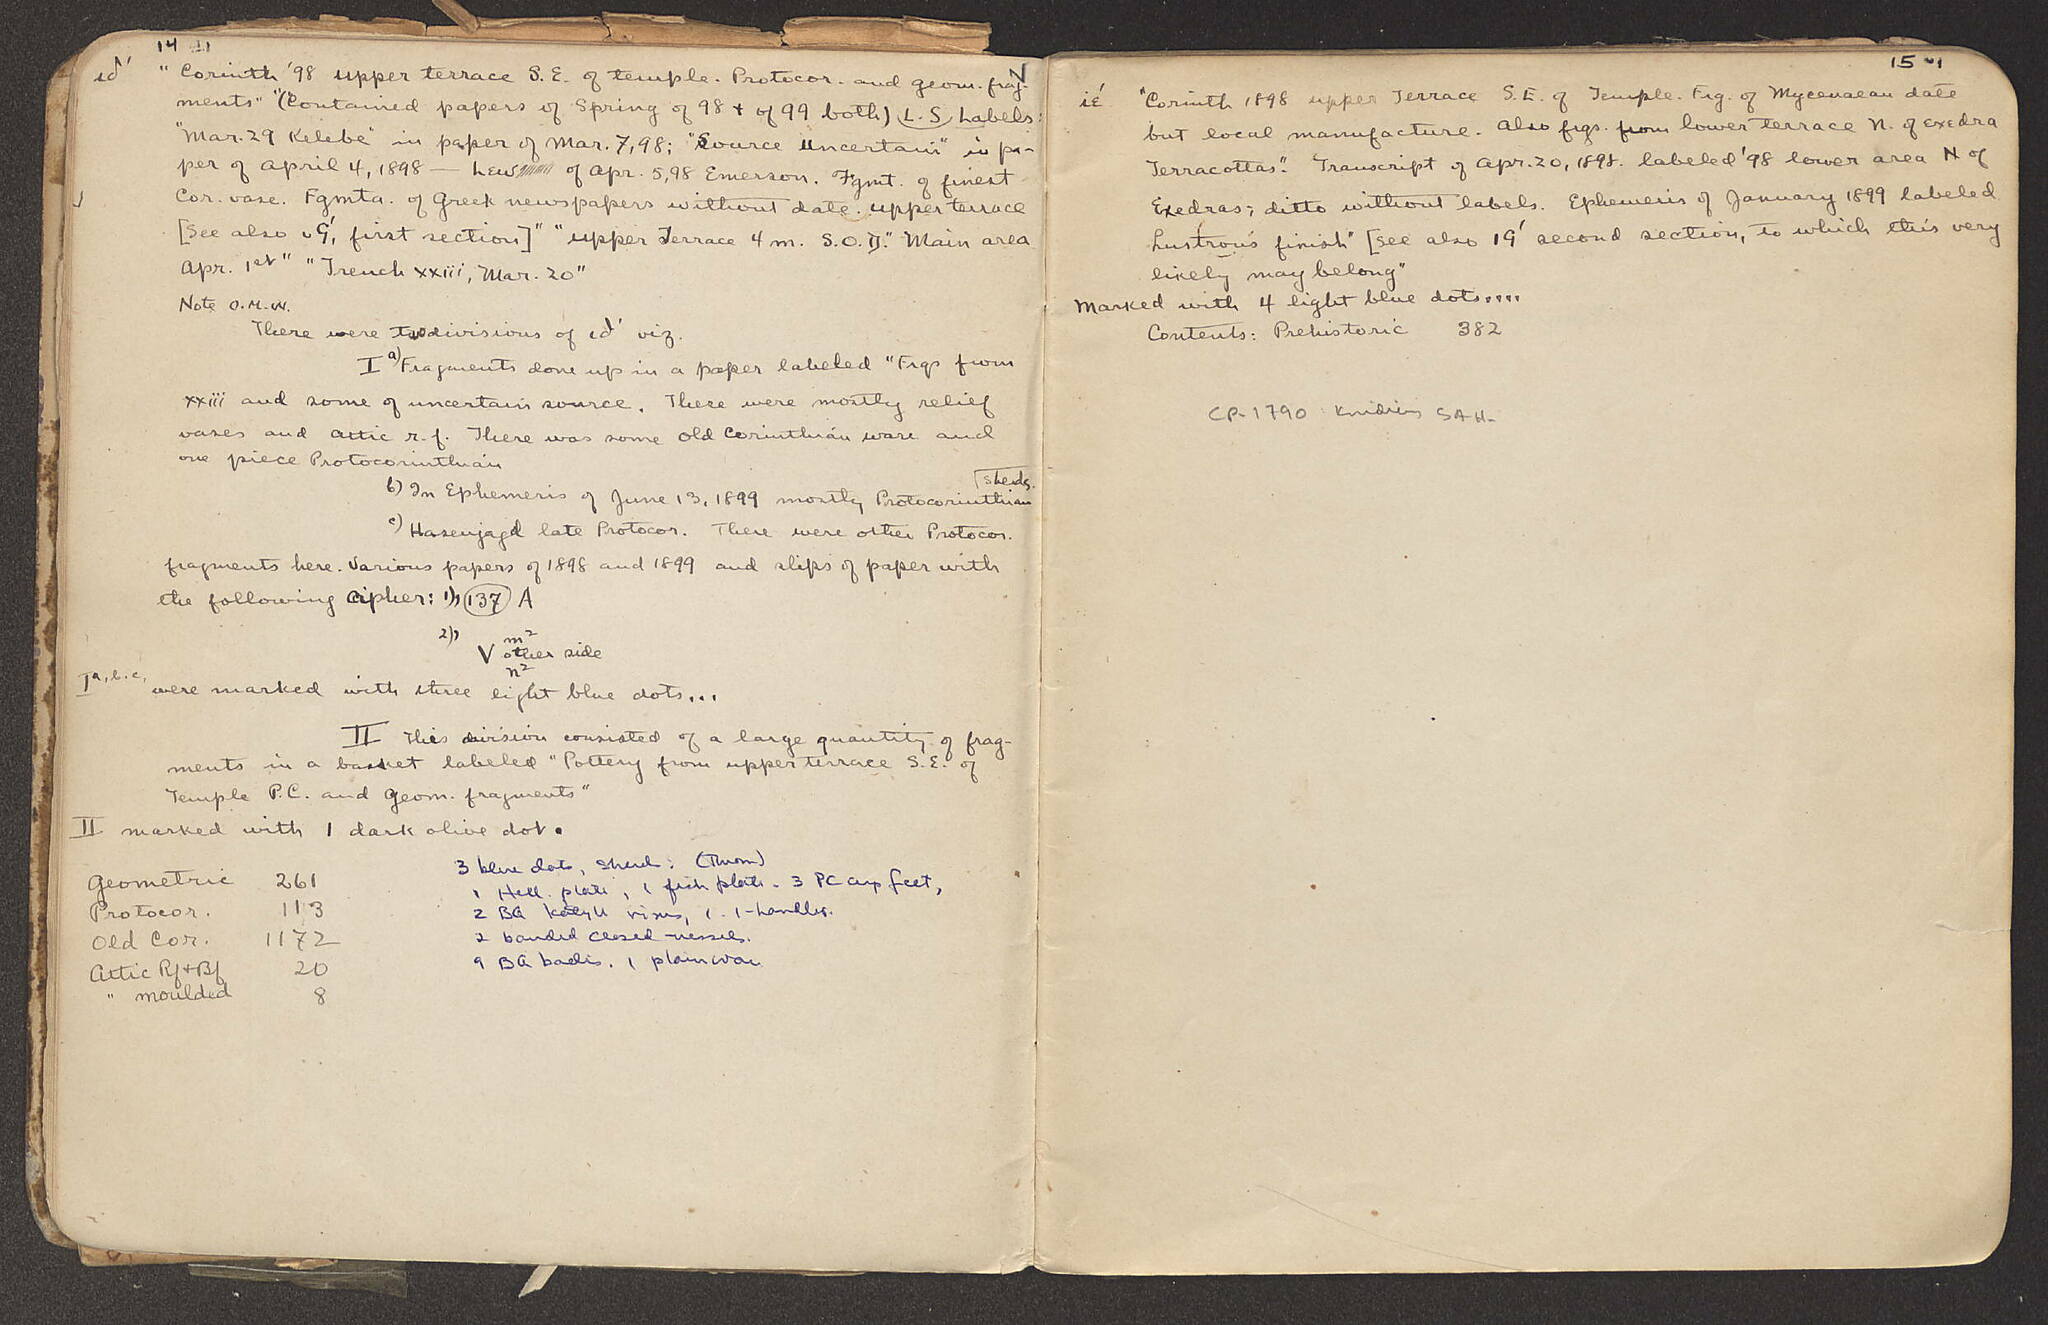 14
ιδ´ "Corinth '98 upper terrace S.E. of temple. Protocor. and geom. frag-
ments" "(Contained papers of Spring of 98 + of 99 both) L.S. Labels:
"Mar. 29 Kelebe" in paper of Mar. 7, 98; "Source uncertain" in pa-
per of April 4, 1898 — of Apr. 5, 98 Emerson. Fgmt. of finest
Cor. vase. Fgmta. of Greek newspapers without date. upper terrace
[See also first section]" "upper Terrace 4 m. S.O.D." Main area
Apr. 1st" "Trench xxiii, Mar. 20"
Note O.M.W.
There were two divisions of ιδ´ viz.
I a) Fragments done up in a paper labeled "Frgs from
xxiii and some of uncertain source. There were mostly relief
vases and Attic r.f. There was some Old Corinthian ware and
one piece Protocorinthian
b) In Ephemeris of June 13, 1899 mostly Protocorinthian sherds.
c) Hasenjagd late Protocor. There were other Protocor.
fragments here. Various papers of 1898 and 1899 and slips of paper with
the following cipher: 1), 137 A
2), m²
V other side
n²
I a, b, c, were marked with three light blue dots...
II This division consisted of a large quantity of frag-
ments in a basket labeled "Pottery from upper terrace S.E. of
Temple P.C. and Geom. fragments"
II marked with 1 dark olive dot.
Geometric 261
Protocor. 113
Old Cor. 1172
Attic Rf + Bf 20
" moulded 8
3 blue dots, sherds:
1 Hell. plate, 1 fish plate. 3 PC cup feet,
2 BG rims, 1 1-handler.
2 banded closed vessels.
9 BG bodies. 1 plain
15
ιέ "Corinth 1898 upper Terrace S.E. of Temple. Frg. of Mycenaean date
but local manufacture. Also frgs. from lower terrace N. of exedra
Terracottas". Transcript of Apr. 20, 1898. labeled '98 lower area N of
Exedras; ditto without labels. Ephemeris of January 1899 labeled
Lustrous finish" [see also 19´ second section, to which this very
likely may belong"
Marked with 4 light blue dots....
Contents: Prehistoric 382
CP-1790 Knidian SAH-